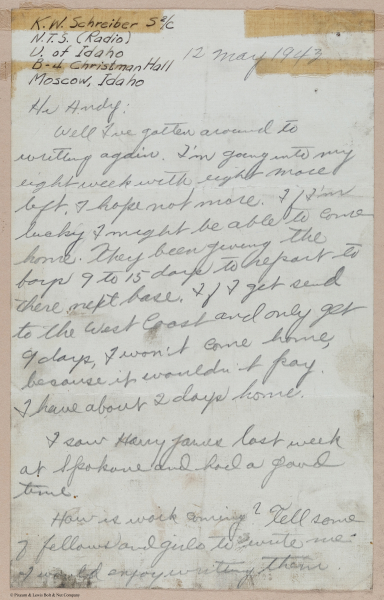 K.W. Schreiber S2/c
N.T.S. (Radio)
U. of Idaho
B-4 Christman Hall
Moscow, Idaho
12 May 1943
Hi Andy:
Well I've gotten around to
writing again. I'm going into my
eight week with eight more
left, I hope not more. If I'm
lucky I might be able to come
home. They been giving the
boys 9 to 15 days to report to
there next base. If I get send
to the West Coast and only get
9 days, I won't come home,
because it wouldn't pay.
I have about 2 days home.
I saw Harry James last week
at Spokane and had a good
time.
How is work coming? Tell some
of fellows and girls to write me
I would enjoy writing them.
© Pequot & Lower Bolt & Nut Company